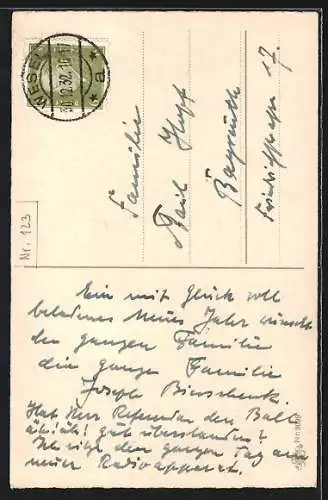 WESEL
30.12.32.10-17
* a *
Familie
Karl Hopf
Bayreuth
Friedrichstrasse 17.
Nr. 123
Ein mit Glück voll
beladenes Neues Jahr wünscht
der ganzen Familie
die ganze Familie
Joseph Bierschenk.
Hat Herr Referendar den Ball
gut überstanden?
Ich sitze den ganzen Tag am
neuen Radioapparat.